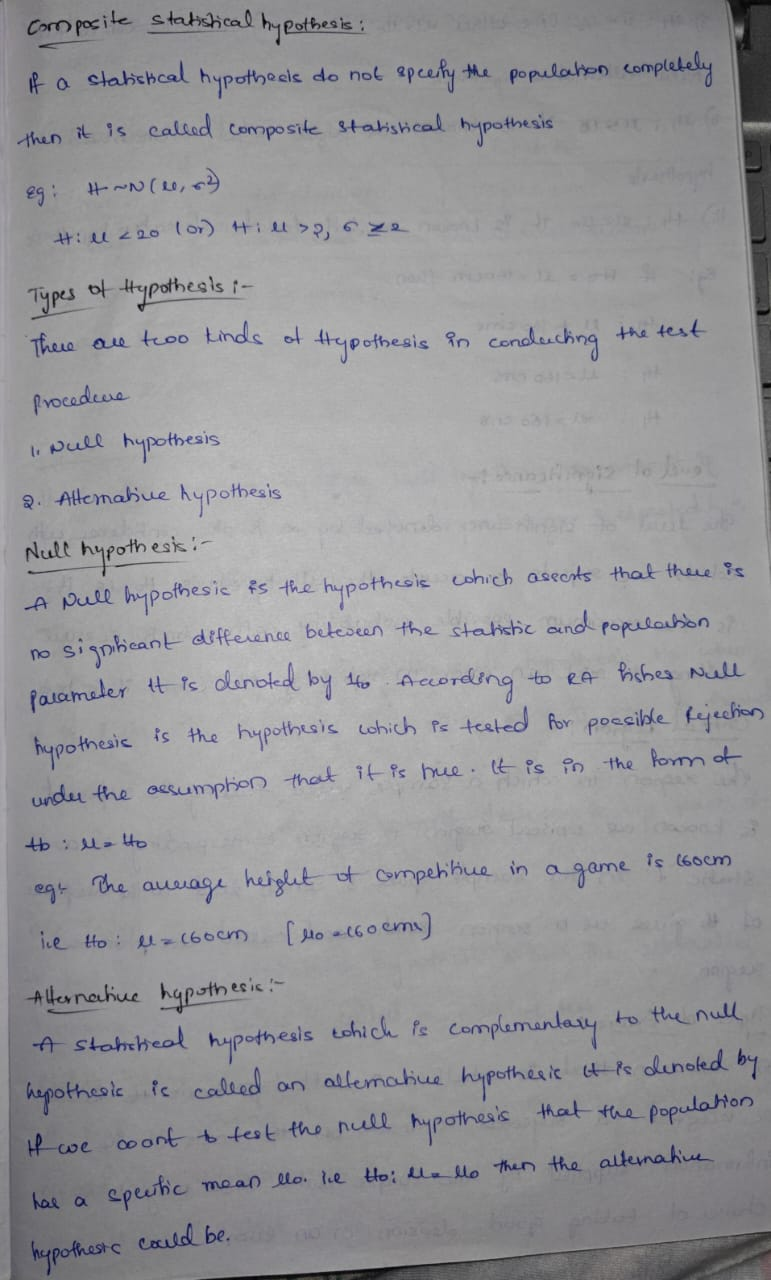 Composite statistical hypothesis :
If a statistical hypothesis do not specify the population completely
then it is called composite statistical hypothesis
eg : H ~ N (μ, σ²)
H : μ < 20 (or) H : μ > 2, σ ≥ 2
Types of Hypothesis :-
There are two kinds of Hypothesis in conducting the test
procedure
1. Null hypothesis
2. Alternative hypothesis
Null hypothesis :-
A Null hypothesis is the hypothesis which asserts that there is
no significant difference between the statistic and population
parameter It is denoted by H0. According to RA fisher Null
hypothesis is the hypothesis which is tested for possible Rejection
under the assumption that it is true. It is in the form of
H0 : μ = H0
eg:- The average height of competitive in a game is 160cm
i.e H0 : μ = 160cm [μ0 = 160cms]
Alternative hypothesis :-
A statistical hypothesis which is complementary to the null
hypothesis is called an alternative hypothesis It is denoted by
If we want to test the null hypothesis that the population
has a specific mean μ0. i.e H0 : μ = μ0 then the alternative
hypothesis could be.